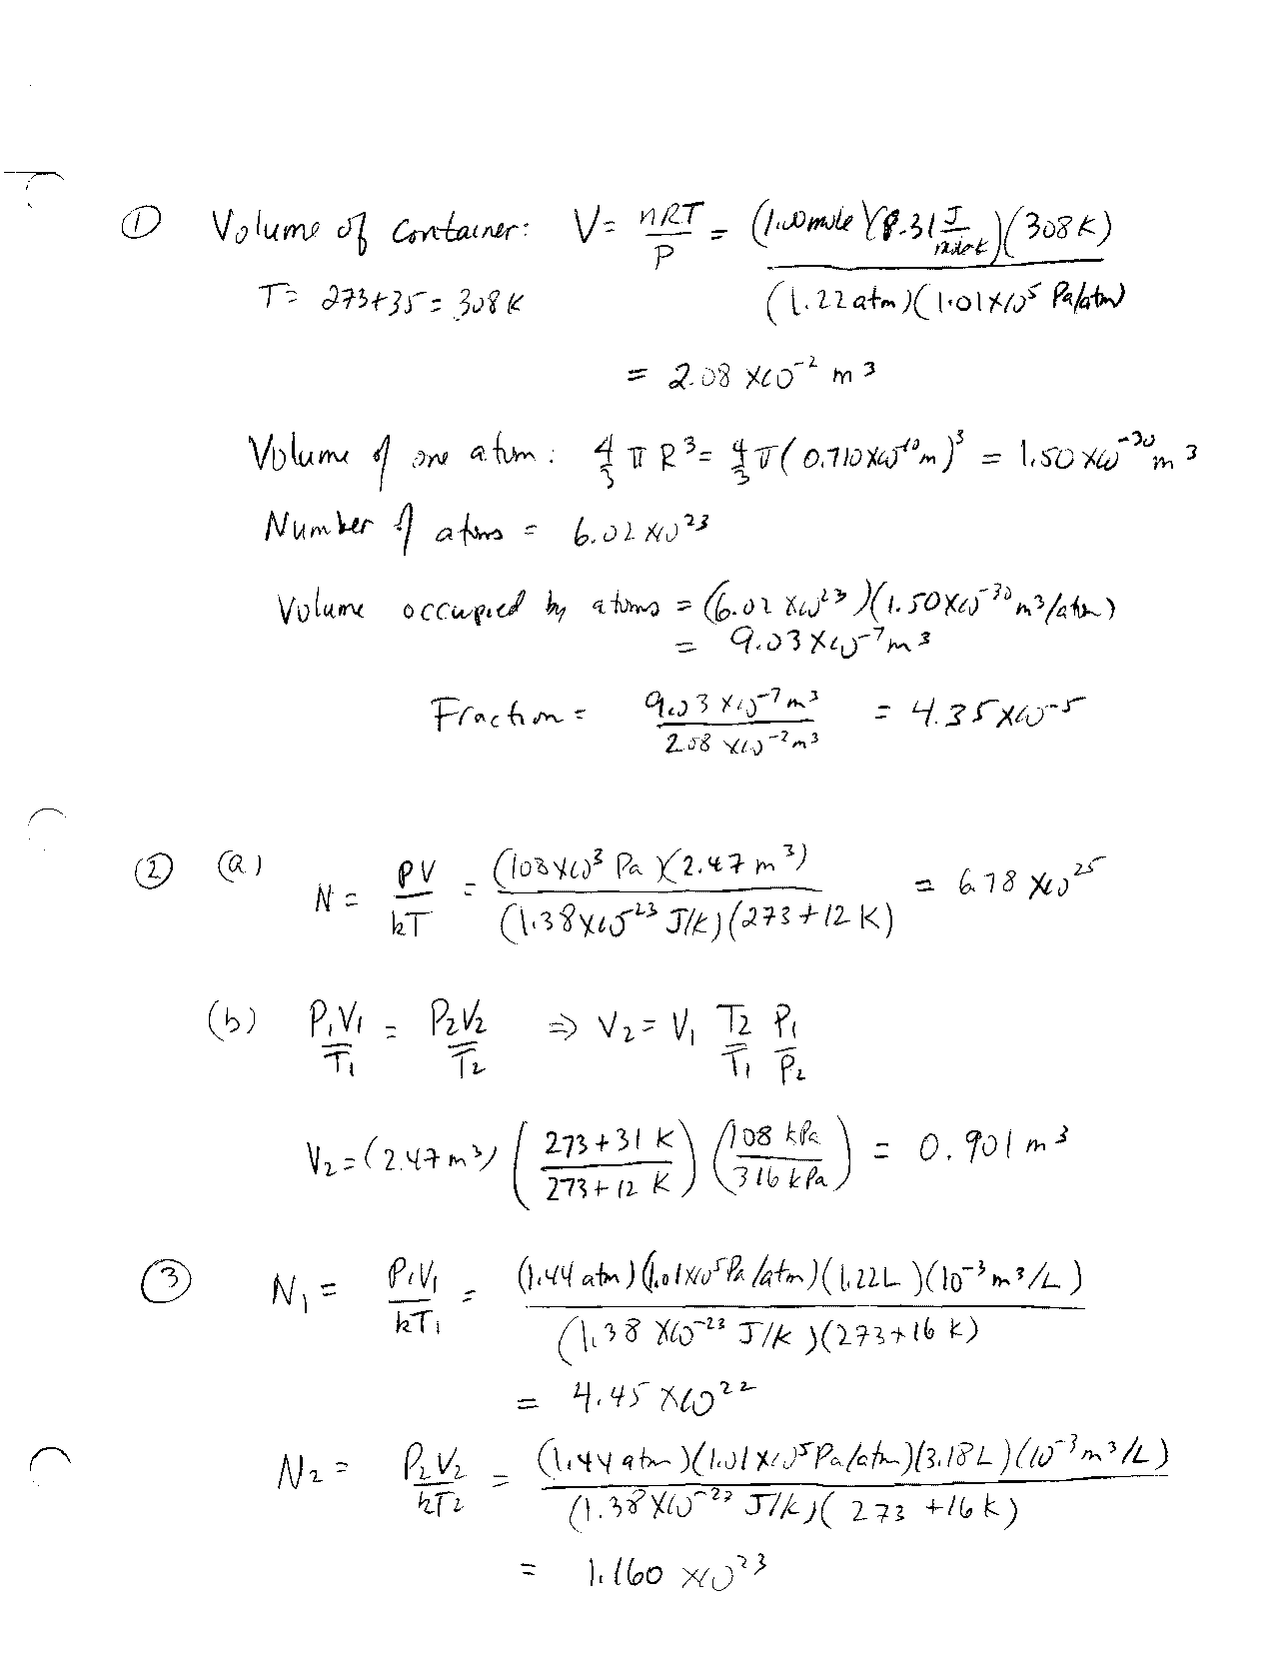 ① Volume of container: V = nRT/P = (1.00 mole)(8.31 J/mole·K)(308 K) / (1.22 atm)(1.01×10⁵ Pa/atm)
T = 273+35 = 308 K
= 2.08 ×10⁻² m³
Volume of one atom: 4/3 π R³ = 4/3 π (0.710×10⁻¹⁰ m)³ = 1.50 ×10⁻³⁰ m³
Number of atoms = 6.02 ×10²³
Volume occupied by atoms = (6.02 ×10²³)(1.50×10⁻³⁰ m³/atom)
= 9.03 ×10⁻⁷ m³
Fraction = 9.03 ×10⁻⁷ m³ / 2.08 ×10⁻² m³ = 4.35 ×10⁻⁵
② (a) N = PV/kT = (108×10³ Pa)(2.47 m³) / (1.38×10⁻²³ J/K)(273+12 K) = 6.78 ×10²⁵
(b) P₁V₁/T₁ = P₂V₂/T₂ ⇒ V₂ = V₁ T₂/T₁ P₁/P₂
V₂ = (2.47 m³) (273+31 K / 273+12 K) (108 kPa / 316 kPa) = 0.901 m³
③ N₁ = P₁V₁/kT₁ = (1.44 atm)(1.01×10⁵ Pa/atm)(1.22L)(10⁻³ m³/L) / (1.38 ×10⁻²³ J/K)(273+16 K)
= 4.45 ×10²²
N₂ = P₂V₂/kT₂ = (1.44 atm)(1.01×10⁵ Pa/atm)(3.18L)(10⁻³ m³/L) / (1.38×10⁻²³ J/K)(273 +16 K)
= 1.160 ×10²³